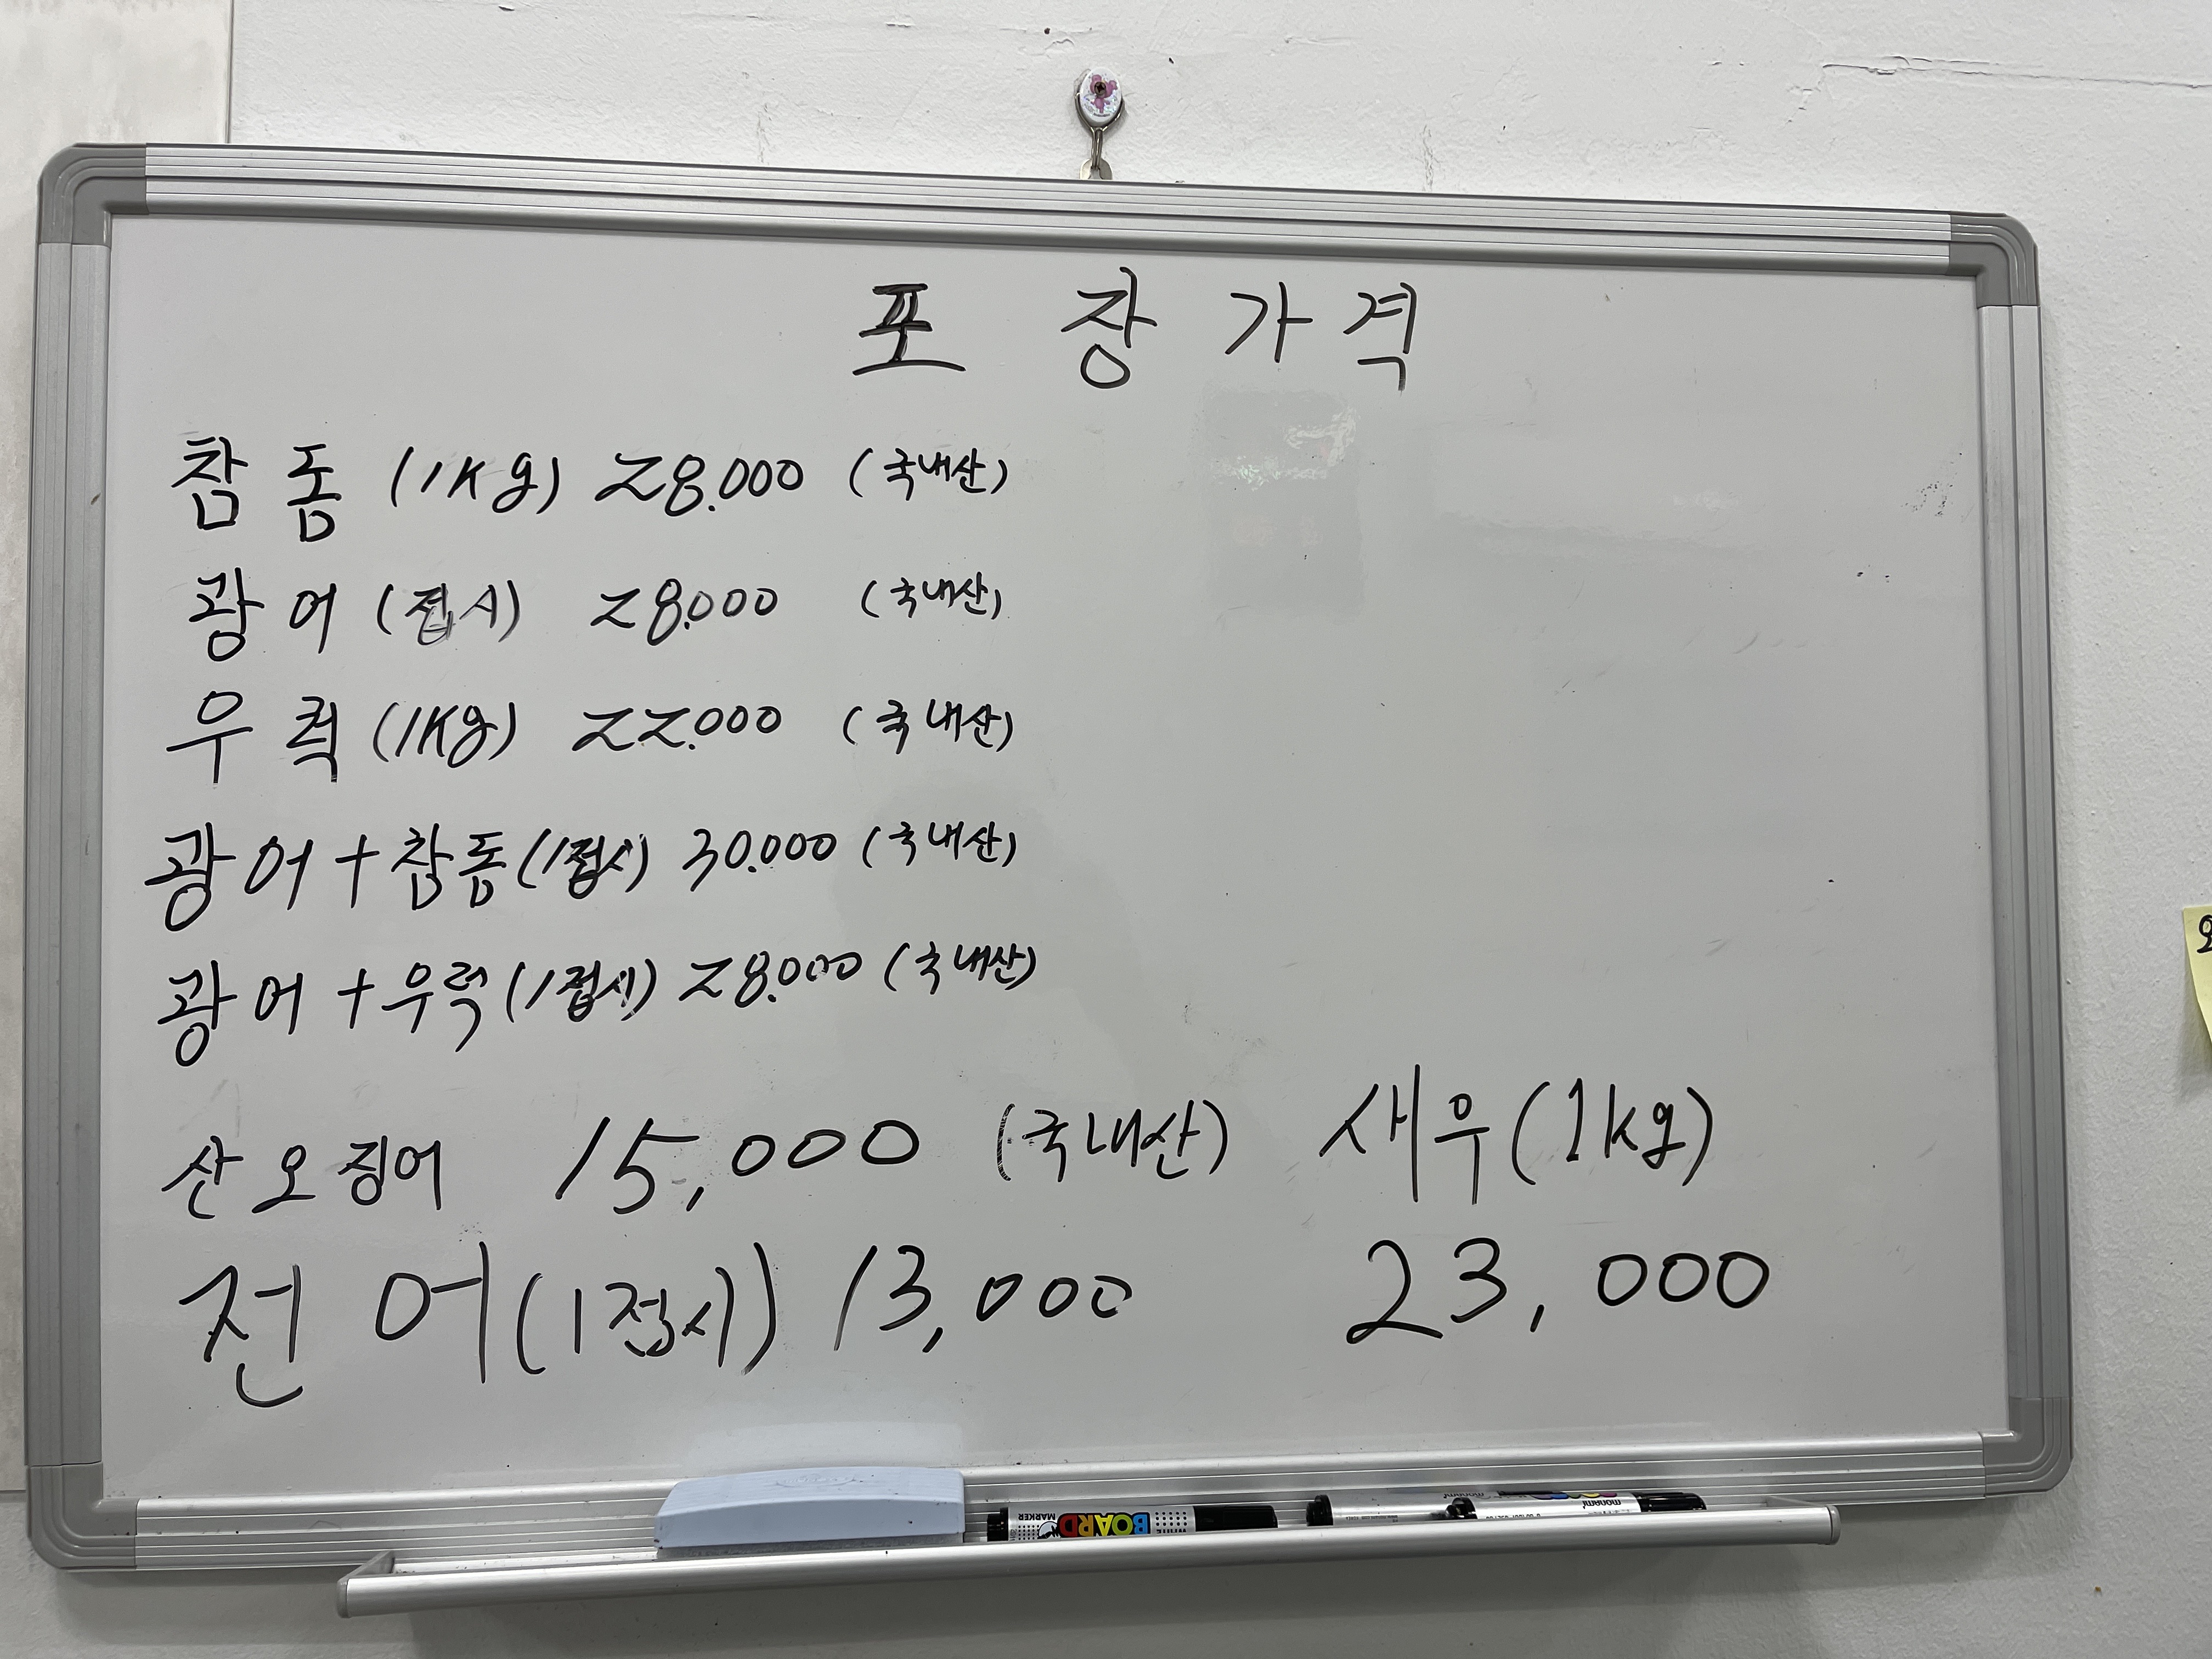 포 장 가 격
참 돔 (1Kg) 28.000 (국내산)
광 어 (접시) 28.000 (국내산)
우 럭 (1Kg) 22.000 (국내산)
광 어 + 참돔 (1접시) 30.000 (국내산)
광 어 + 우럭 (1접시) 28.000 (국내산)
산 오 징어 15,000 (국내산)
전 어 (1접시) 13,000
새우 (1kg)
23,000
WHITE BOARD MARKER
monami
monami
오